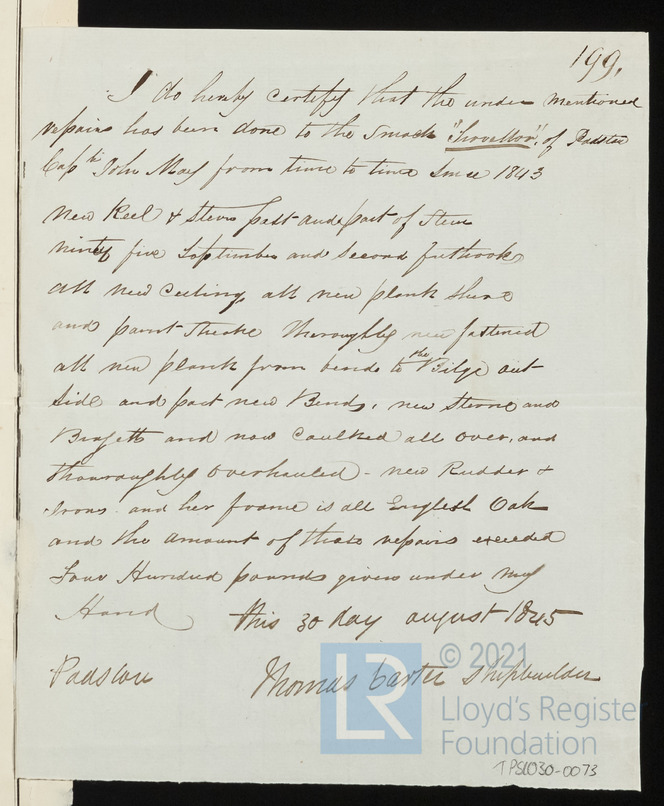 199.
I do hereby certify that the under mentioned
repairs has been done to the Smack "Traveller", of Padstow
Capt John May from time to time since 1843
New Keel & Stern post and part of Stem
ninety five and Second futhooks
all new Ceiling, all new plank Shear
and paint Streake thoroughly new fastened
all new plank from bends to the Bilge out
Side and part new Bends, new Sterne and
and now Caulked all over, and
thouroughly overhauled - new Rudder &
Irons and her frame is all English Oak
and the amount of these repairs exceeded
Four Hundred pounds given under my
Hand this 30 day august 1845
Padstow Thomas Carter Shipbuilder
LR © 2021
Lloyd's Register
Foundation
TPSL030-0073